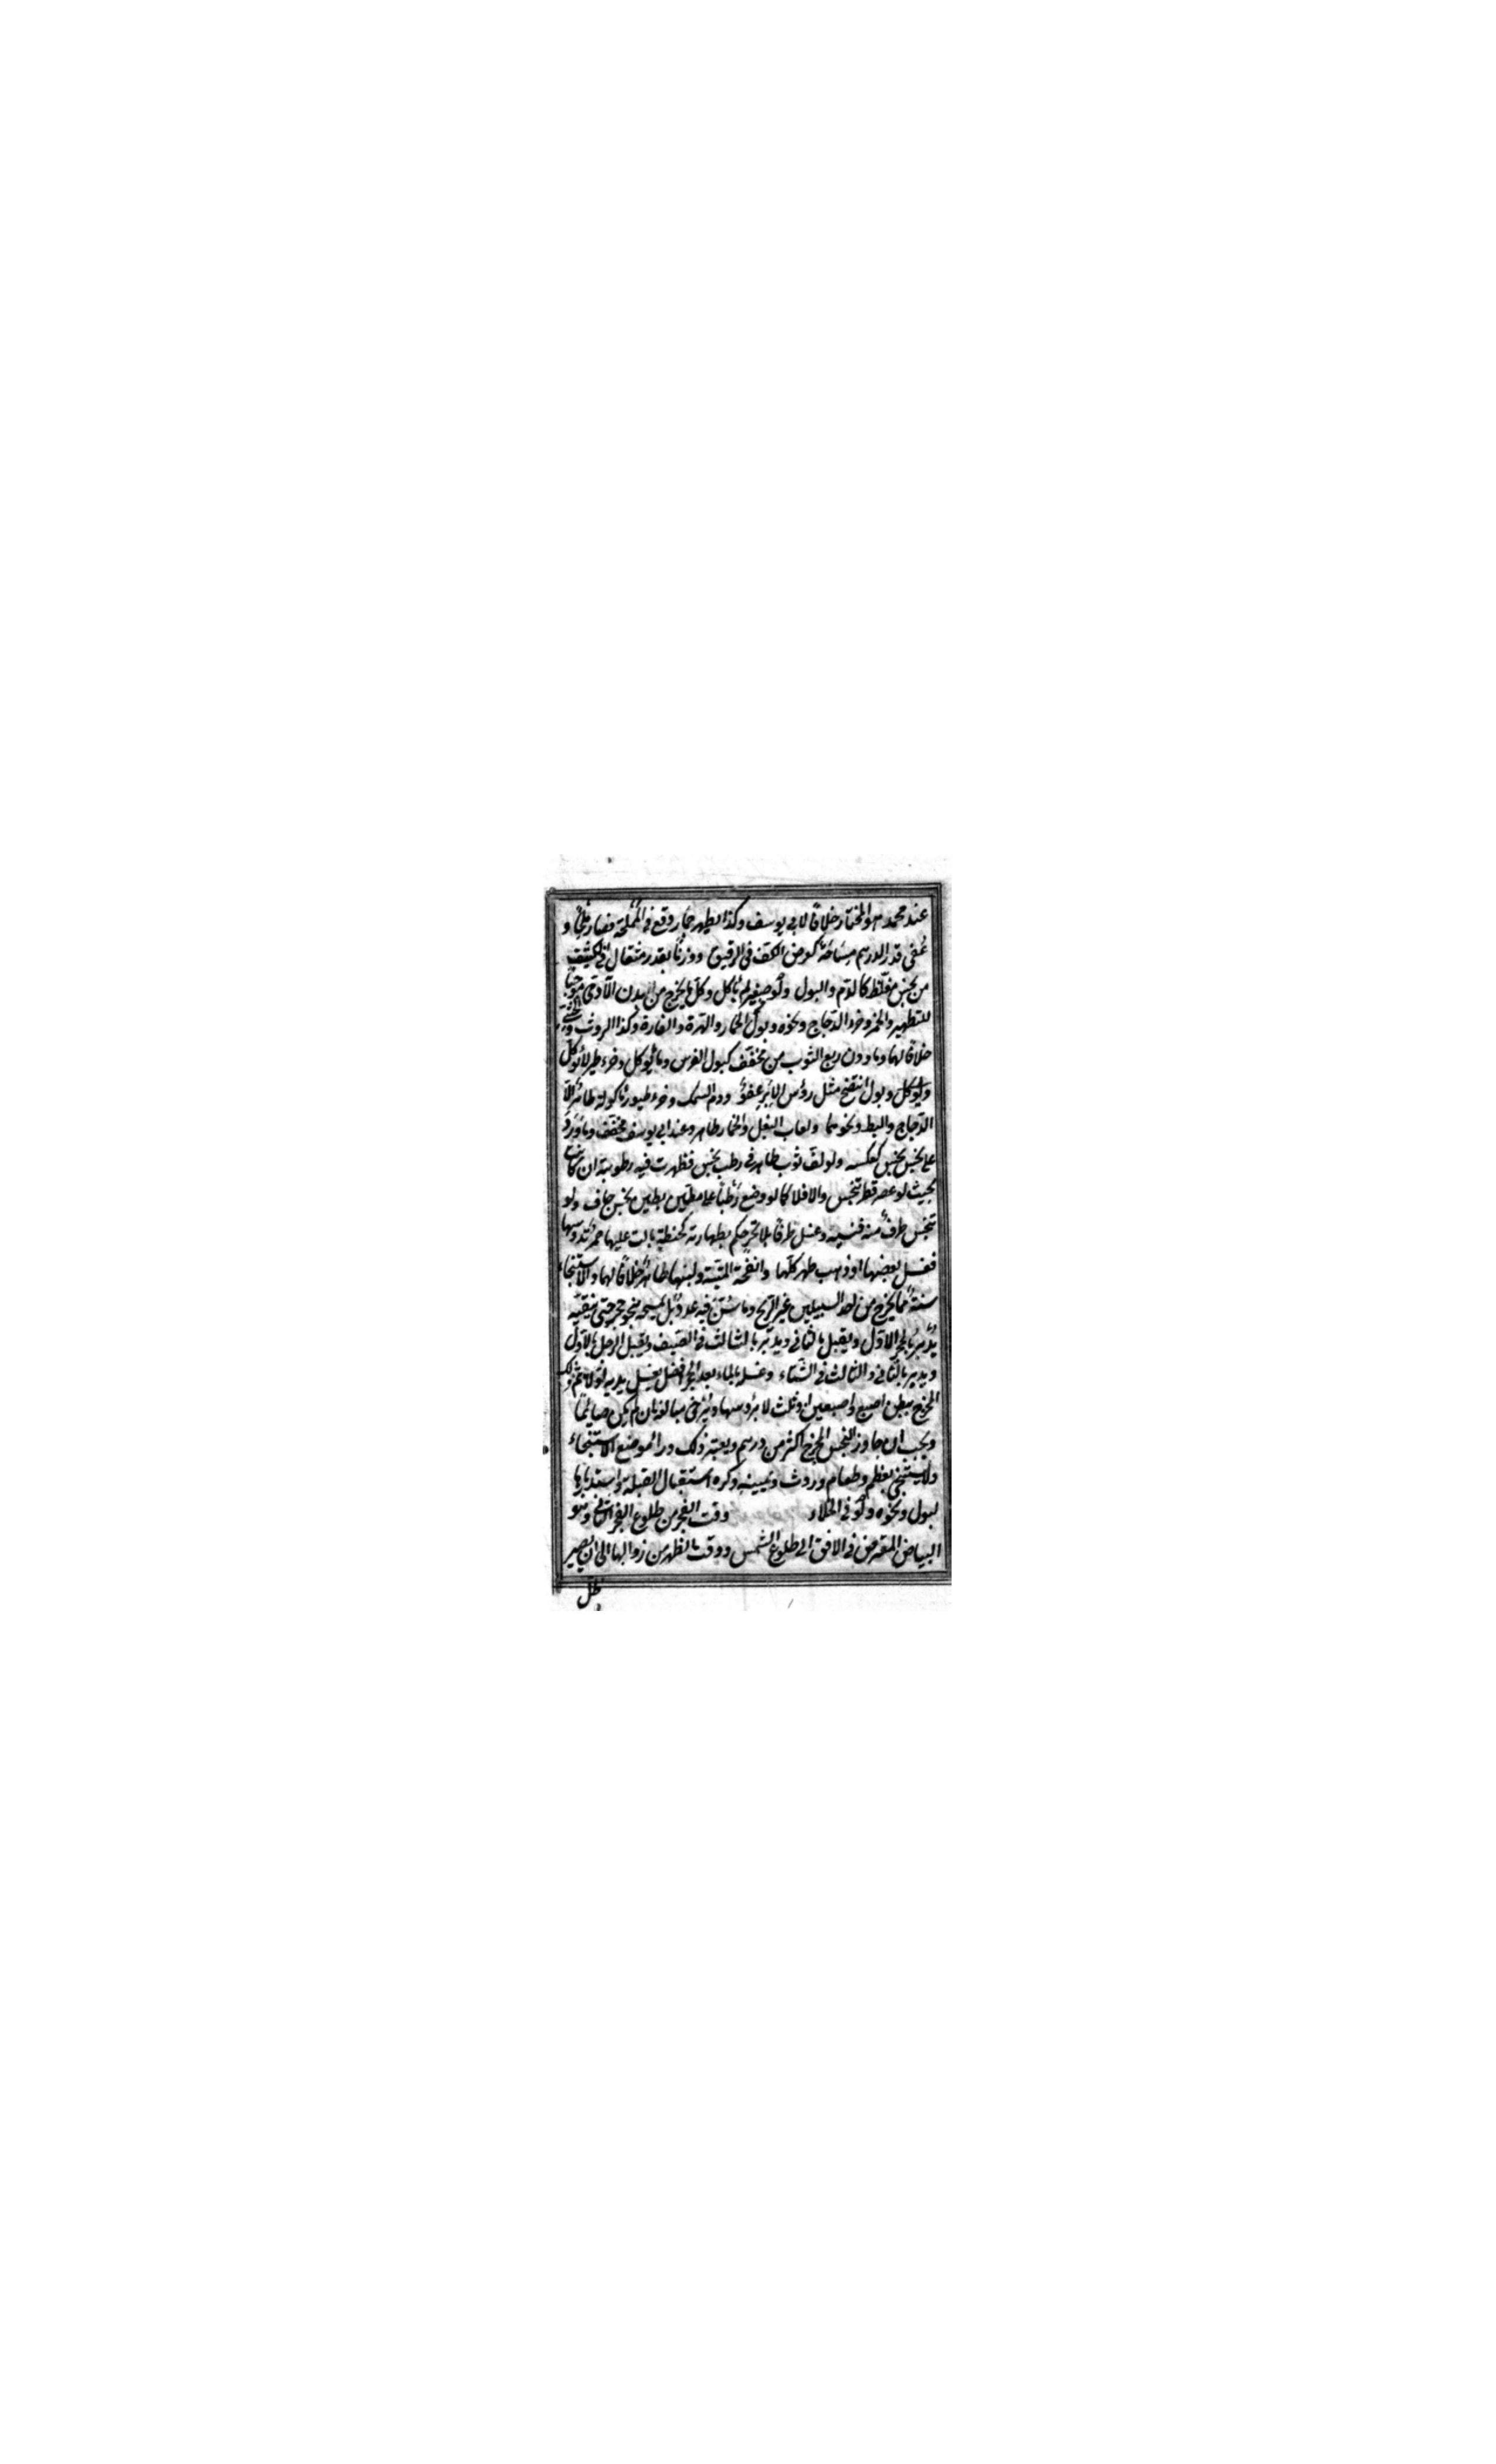 عند محمد هو المختار خلافا لابي يوسف وكذا يطهر حمار وقع في المملحة فصار ملحا و
عفي قدر الدرهم مساحة كعرض الكف في الرقيق ووزنا بقدر مثقال في الكثيف
من نجس مغلظ كالدم والبول ولو صغير لم يأكل وكل ما يخرج من بدن الآدمي موجبا
للتطهير والخمر وخرء الدجاج ونحوه وبول الحمار والهرة والفارة وكذا الروث والخثي
خلافا لهما وما دون ربع الثوب من مخفف كبول الفرس وما يؤكل وخرء طير لا يؤكل
وبول انتضح مثل رؤس الابر عفو ودم السمك وخرء طيور مأكولة طاهر الا
الدجاج والبط ونحوهما ولعاب البغل والحمار طاهر وعند ابي يوسف مخفف وما ورد
على نجس نجس كعكسه ولو لف ثوب طاهر في رطب نجس فظهرت فيه رطوبة ان كانت
بحيث لو عصر قطر تنجس والا فلا كما لو وضع رطبا على مطين بطين نجس جاف ولو
تنجس طرف منه فنسيه وغسل طرفا بلا تحر حكم بطهارته كحنطة بالت عليها حمر تدوسها
فغسل بعضها او ذهب طهر كلها وانفحة الميتة ولبنها طاهر خلافا لهما والاستنجاء
سنة مما يخرج من احد السبيلين غير الريح وما سن فيه عدد بل يمسحه بنحو حجر حتى ينقيه
يدبر بالحجر الاول ويقبل بالثاني ويدبر بالثالث في الصيف ويقبل الرجل بالاول
ويدبر بالثاني والثالث في الشتاء وغسله بالماء بعد الحجر افضل يغسل يديه اولا ثم
المخرج ببطن اصبع او اصبعين او ثلث لا برؤسها ويرخي مبالغة ان لم يكن صايما
ويجب ان جاوز النجس المخرج اكثر من درهم ويعتبر ذلك وراء موضع الاستنجاء
ولا يستنجي بعظم وطعام وروث ويمينه وكره استقبال القبلة واستدبارها
لبول ونحوه ولو في الخلاء وقت الفجر من طلوع الفجر الثاني وهو
البياض المعترض في الافق الى طلوع الشمس ووقت الظهر من زوالها الى ان يصير
ظل